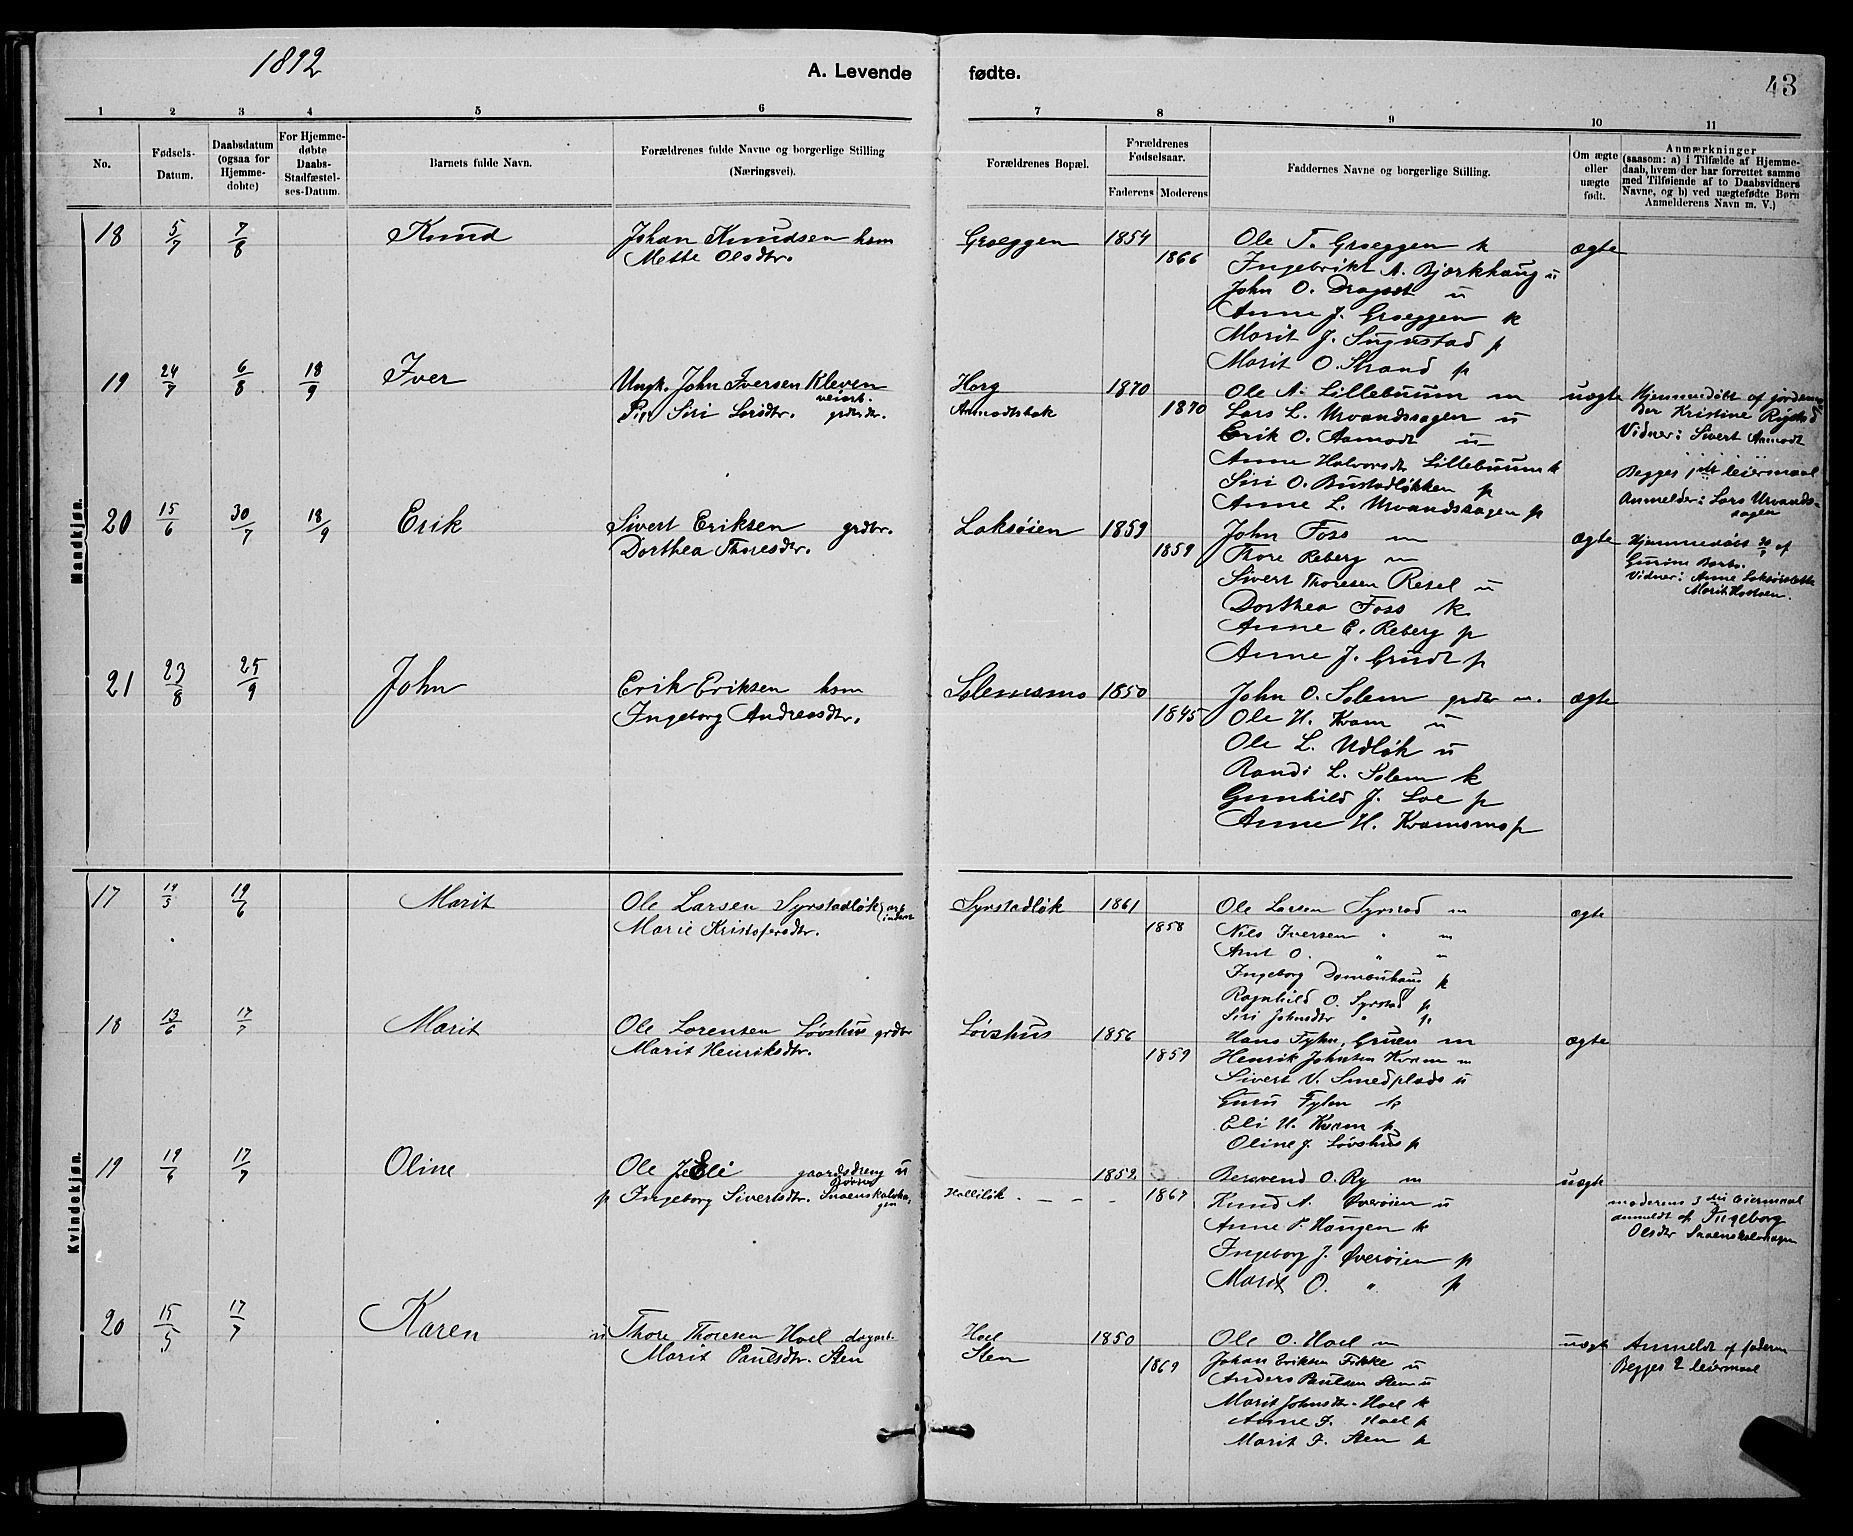 1892
A. Levende fødte.
43
1 2 3 4 5 6 7 8 9 10 11
No.
Fødsels-
Datum.
Daabsdatum
(ogsaa for
Hjemme-
døbte)
For Hjemme-
døbte
Daabs-
Stadfæstel-
ses-Datum.
Barnets fulde Navn.
Forældrenes fulde Navne og borgerlige Stilling
(Næringsvei).
Forældrenes Bopæl.
Forældrenes
Fødselsaar.
Faderens Moderens
Faddernes Navne og borgerlige Stilling.
Om ægte
eller
uægte
født.
Anmærkninger
(saasom: a) i Tilfælde af Hjemme-
daab, hvem der har forrettet samme
med Tilføiende af to Daabsvidners
Navne, og b) ved uægtefødte Børn
Anmelderens Navn m. V.)
Mandkjøn.
18 5/7 7/8 Knud
Johan Knudsen hsm
Mette Olsdtr.
Græggen 1854
1866
Ole T. Græggen k
Ingebrikt A. Bjørkhaug u
John O. Dragset u
Anne J. Græggen k
Marit J. Sugustad p
Marit O. Strand p
ægte
19 24/7 6/8 18/9 Iver
Ungk. John Iversen Kleven
veiarb.
Pig. Siri Larsdtr. grdbdtr.
Horg
Aamodtsbak
1870
1870
Ole A. Lillebuum m
Lars L. Urvandssagen u
Erik O. Aamodt u
Anne Halvorsdtr Lillebuum k
Siri O. Bustadløkken p
Anne L. Urvandssagen p
uægte
Hjemmedøbt af jordemo
der Kristine Rigstad
Vidner: Sivert Aamodt
Begges 1ste leiermaal
Anmelder: Lars Urvands-
sagen
20 15/6 30/7 18/9 Erik
Sivert Eriksen grdbr.
Dorthea Thoresdtr.
Laksøien 1859
1859
John Foss m
Thore Reberg m
Sivert Thoresen Resel u
Dorthea Foss k
Anne E. Reberg p
Anne J. Grudt p
ægte
Hjemmedøbt 30/7 af
Vidner: Anne Laksøsletta
21 23/8 25/9 John
Erik Eriksen hsm
Ingeborg Andreasdtr.
Solemsmo 1850
1845
John O. Solem grdbr m.
Ole H. Kvam u
Ole L. Udløk u
Randi L. Solem k
Gunhild J. Loe p
Anne H. Kvamsmo p
ægte
Kvindekjøn.
17 19/5 19/6 Marit
Ole Larsen Syrstadløk arb
inderst
Marie Kristofersdtr.
Syrstadløk 1861
1858
Ole Larsen Syrstad m
Nils Iversen " m
Arnt O. " m
Ingeborg Dombuhaug k
Ragnhild O. Syrstad p
Siri Johnsdtr " p
ægte
18 13/6 17/7 Marit
Ole Lorentsen Løvshus grdbr
Marit Henriksdtr.
Løvshus 1856
1859
Hans Fyhn, Gruen m
Henrik Johnsen Kvam m
Sivert V. Smedplads u
Guru Fyhn k
Eli H. Kvam p
Oline J. Løvshus p
ægte
19 19/6 17/7 Oline
Ole Eli gaardsdreng u
p Ingeborg Sivertsdtr. Snoenskalvha-
gen
Halliløk - - -
1852
1867
Bersvend O. Ry m
Knud A. Øverøien u
Anne P. Haugen k
Ingeborg J. Øverøien p
Marit O. " p
uægte
moderens 3die leiermaal
anmeldt af Ingeborg
Olsdtr Snoenskalvhagen
20 15/5 17/7 Karen
u Thore Thoresen Hoel dagarb.
Marit Paulsdtr. Sten
Hoel
Sten
1850
1869
Ole O. Hoel m
Johan Eriksen Fikke u
Anders Paulsen Sten u
Marit Johnsdtr. Hoel k
Anne T. Hoel p
Marit J. Sten k
uægte
Anmeldt af faderen
Begges 2 leiermaal